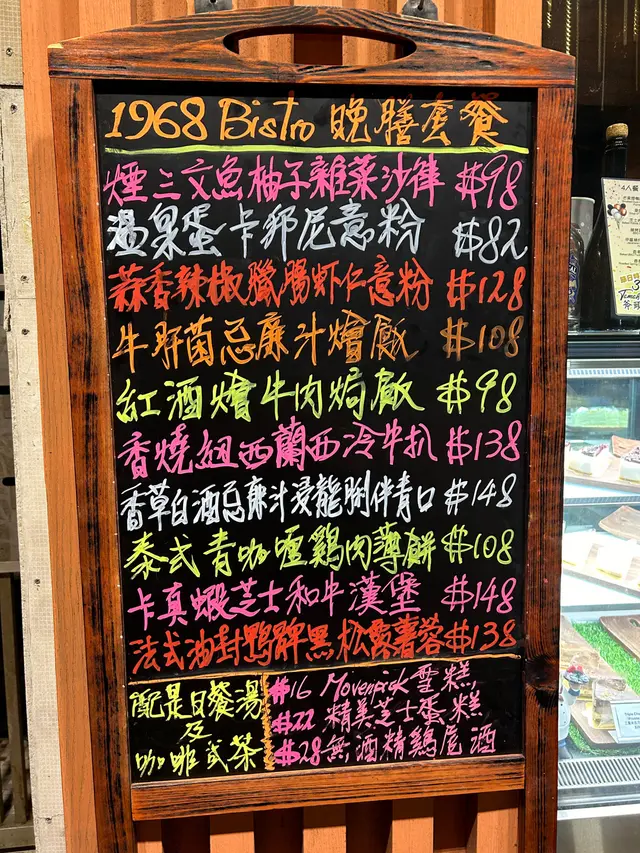 1968 Bistro 晚膳套餐
煙三文魚柚子雜菜沙律 $98
温泉蛋卡邦尼意粉 $82
蒜香辣椒臘腸虾仁意粉 $128
牛肝菌忌廉汁燴飯 $108
紅酒燴牛肉焗飯 $98
香燒紐西蘭西冷牛扒 $138
香草白酒忌廉汁浸龍脷伴青口 $148
泰式青咖喱鷄肉薄餅 $108
卡真蝦芝士和牛漢堡 $148
法式油封鴨髀黑松露薯蓉 $138
配是日餐湯
及
咖啡或茶
$16 Movenpick 雪糕
$22 精美芝士蛋糕
$28 無酒精鷄尾酒